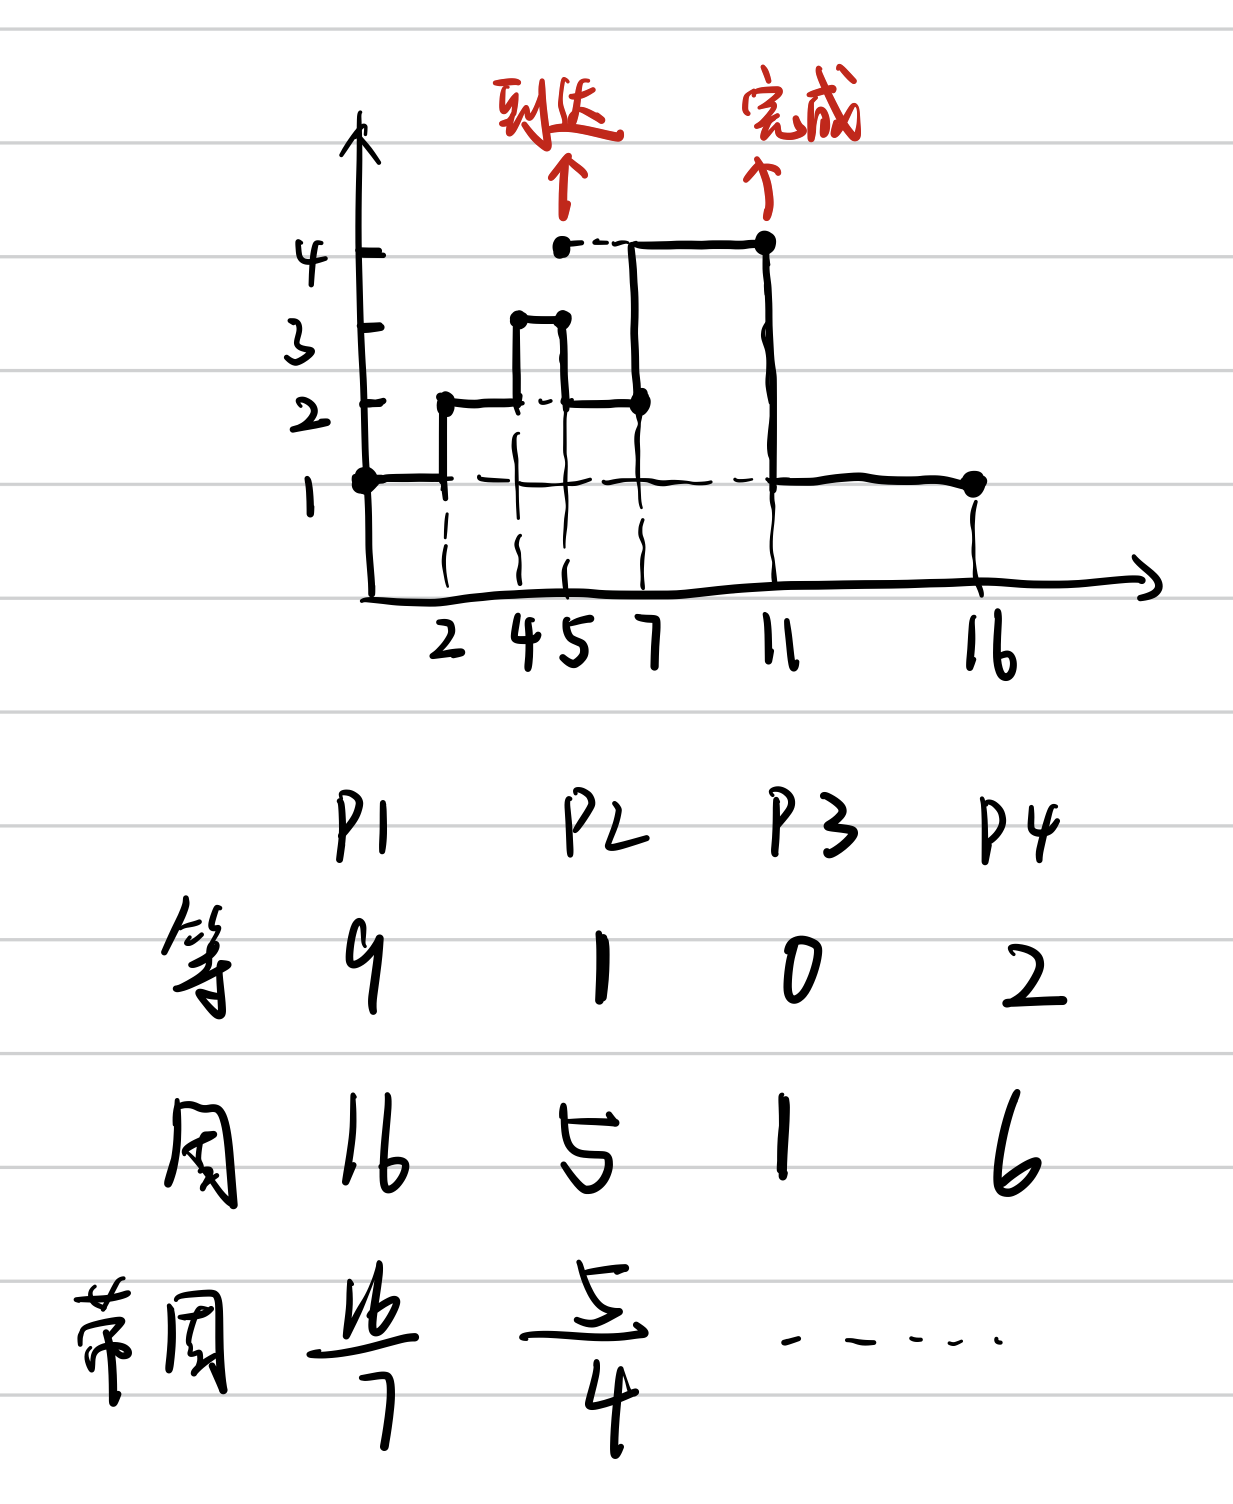 到达 完成
4
3
2
1
2 4 5 7 11 16
P1 P2 P3 P4
等 9 1 0 2
周 16 5 1 6
带周 16/7 5/4 -----